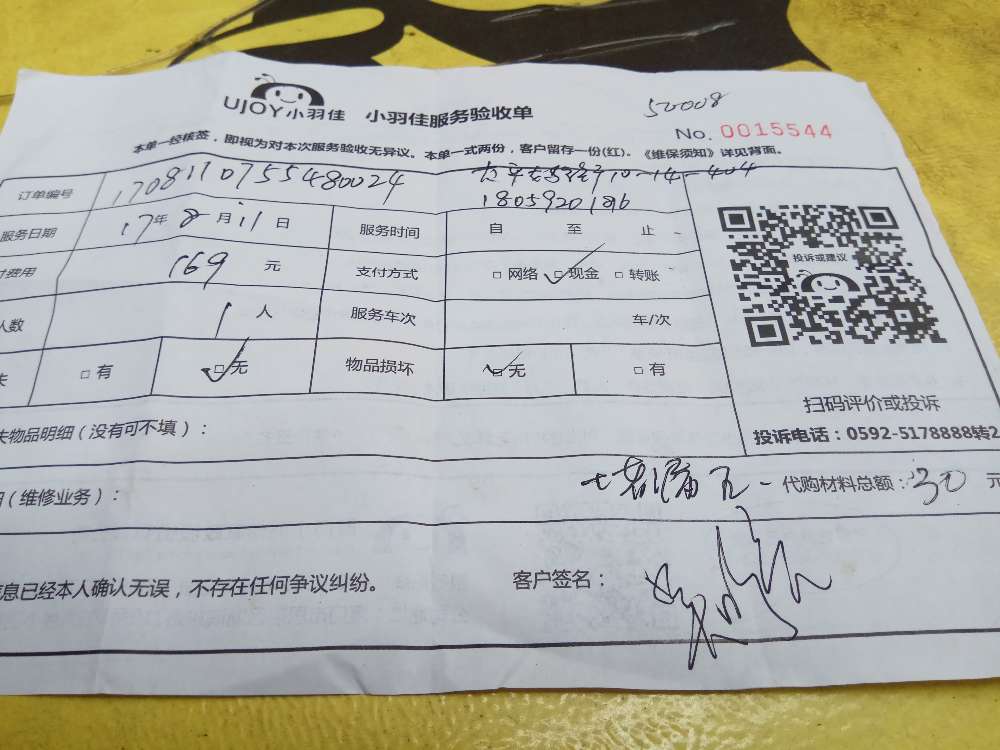 50008
UJOY小羽佳 小羽佳服务验收单
No. 0015544
本单一经核签，即视为对本次服务验收无异议。本单一式两份，客户留存一份(红)。《维保须知》详见背面。
订单编号 1708110755480024 10-14-404
18059201816
服务日期 17年8月11日 服务时间 自 至 止
费用 169 元 支付方式 □网络 □现金 □转账
人数 1 人 服务车次 车/次
□有 □无 物品损坏 □无 □有
投诉或建议
扫码评价或投诉
投诉电话：0592-5178888转2
物品明细（没有可不填）：
（维修业务）： 代购材料总额：30 元
息已经本人确认无误，不存在任何争议纠纷。 客户签名：